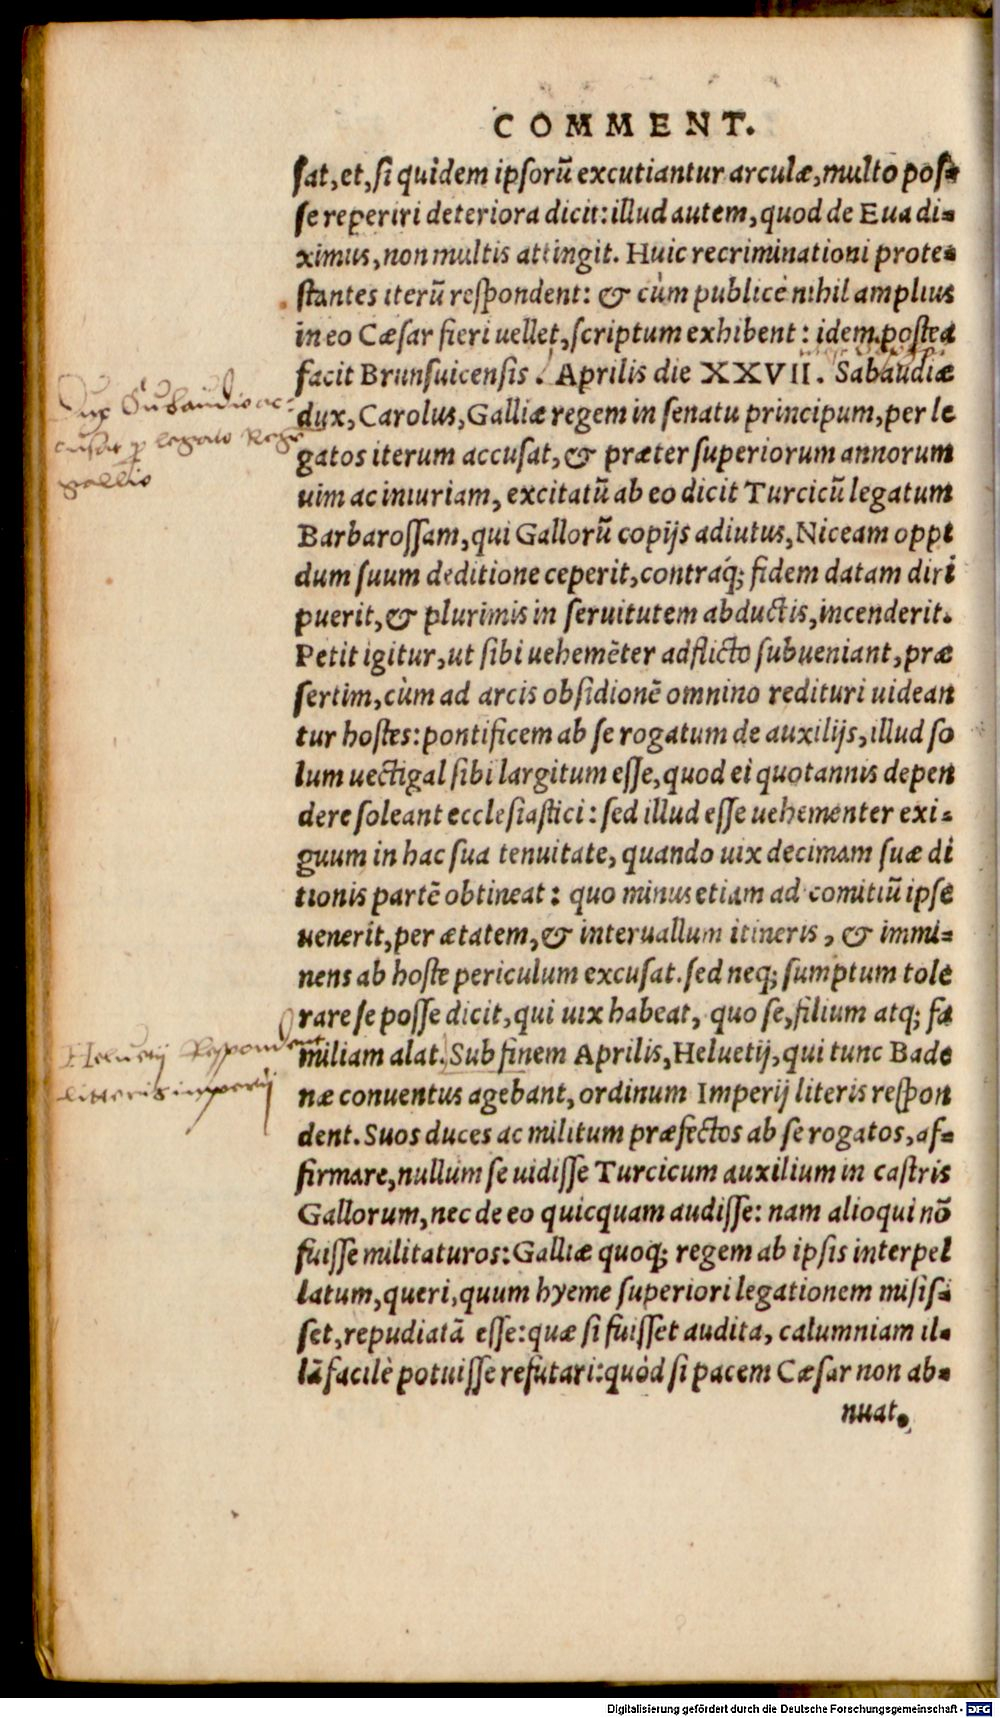 COMMENT.
sat, et, si quidem ipsorũ excutiantur arculæ, multo pos-
se reperiri deteriora dicit: illud autem, quod de Eua di-
ximus, non multis attingit. Huic recriminationi prote-
stantes iterũ respondent: & cùm publicè nihil amplius
in eo Cæsar fieri uellet, scriptum exhibent: idem postea
facit Brunsuicensis. Aprilis die XXVII. Sabaudiæ
dux, Carolus, Galliæ regem in senatu principum, per le
gatos iterum accusat, & præter superiorum annorum
uim ac iniuriam, excitatũ ab eo dicit Turcicũ legatum
Barbarossam, qui Gallorũ copijs adiutus, Niceam oppi
dum suum deditione ceperit, contraq́; fidem datam diri
puerit, & plurimis in seruitutem abductis, incenderit.
Petit igitur, ut sibi uehemẽter adflicto subueniant, præ
sertim, cùm ad arcis obsidionẽ omnino redituri uidean
tur hostes: pontificem ab se rogatum de auxilijs, illud so
lum uectigal sibi largitum esse, quod ei quotannis depen
dere soleant ecclesiastici: sed illud esse uehementer exi-
guum in hac sua tenuitate, quando uix decimam suæ di
tionis partẽ obtineat: quo minus etiam ad comitiũ ipse
uenerit, per ætatem, & interuallum itineris, & immi-
nens ab hoste periculum excusat. sed neq; sumptum tole
rare se posse dicit, qui uix habeat, quo se, filium atq; fa
miliam alat. Sub finem Aprilis, Heluetij, qui tunc Bade
næ conuentus agebant, ordinum Imperij literis respon
dent. Suos duces ac militum præfectos ab se rogatos, af-
firmare, nullum se uidisse Turcicum auxilium in castris
Gallorum, nec de eo quicquam audisse: nam alioqui nõ
fuisse militaturos: Galliæ quoq; regem ab ipsis interpel
latum, queri, quum hyeme superiori legationem misis-
set, repudiatã esse: quæ si fuisset audita, calumniam il-
lã facilè potuisse refutari: quòd si pacem Cæsar non ab-
nuat.
Dux Subaudiæ ac-
cusat p legato Rege
galliæ
Heluetij Respondent
litteris imperij
Digitalisierung gefördert durch die Deutsche Forschungsgemeinschaft - DFG